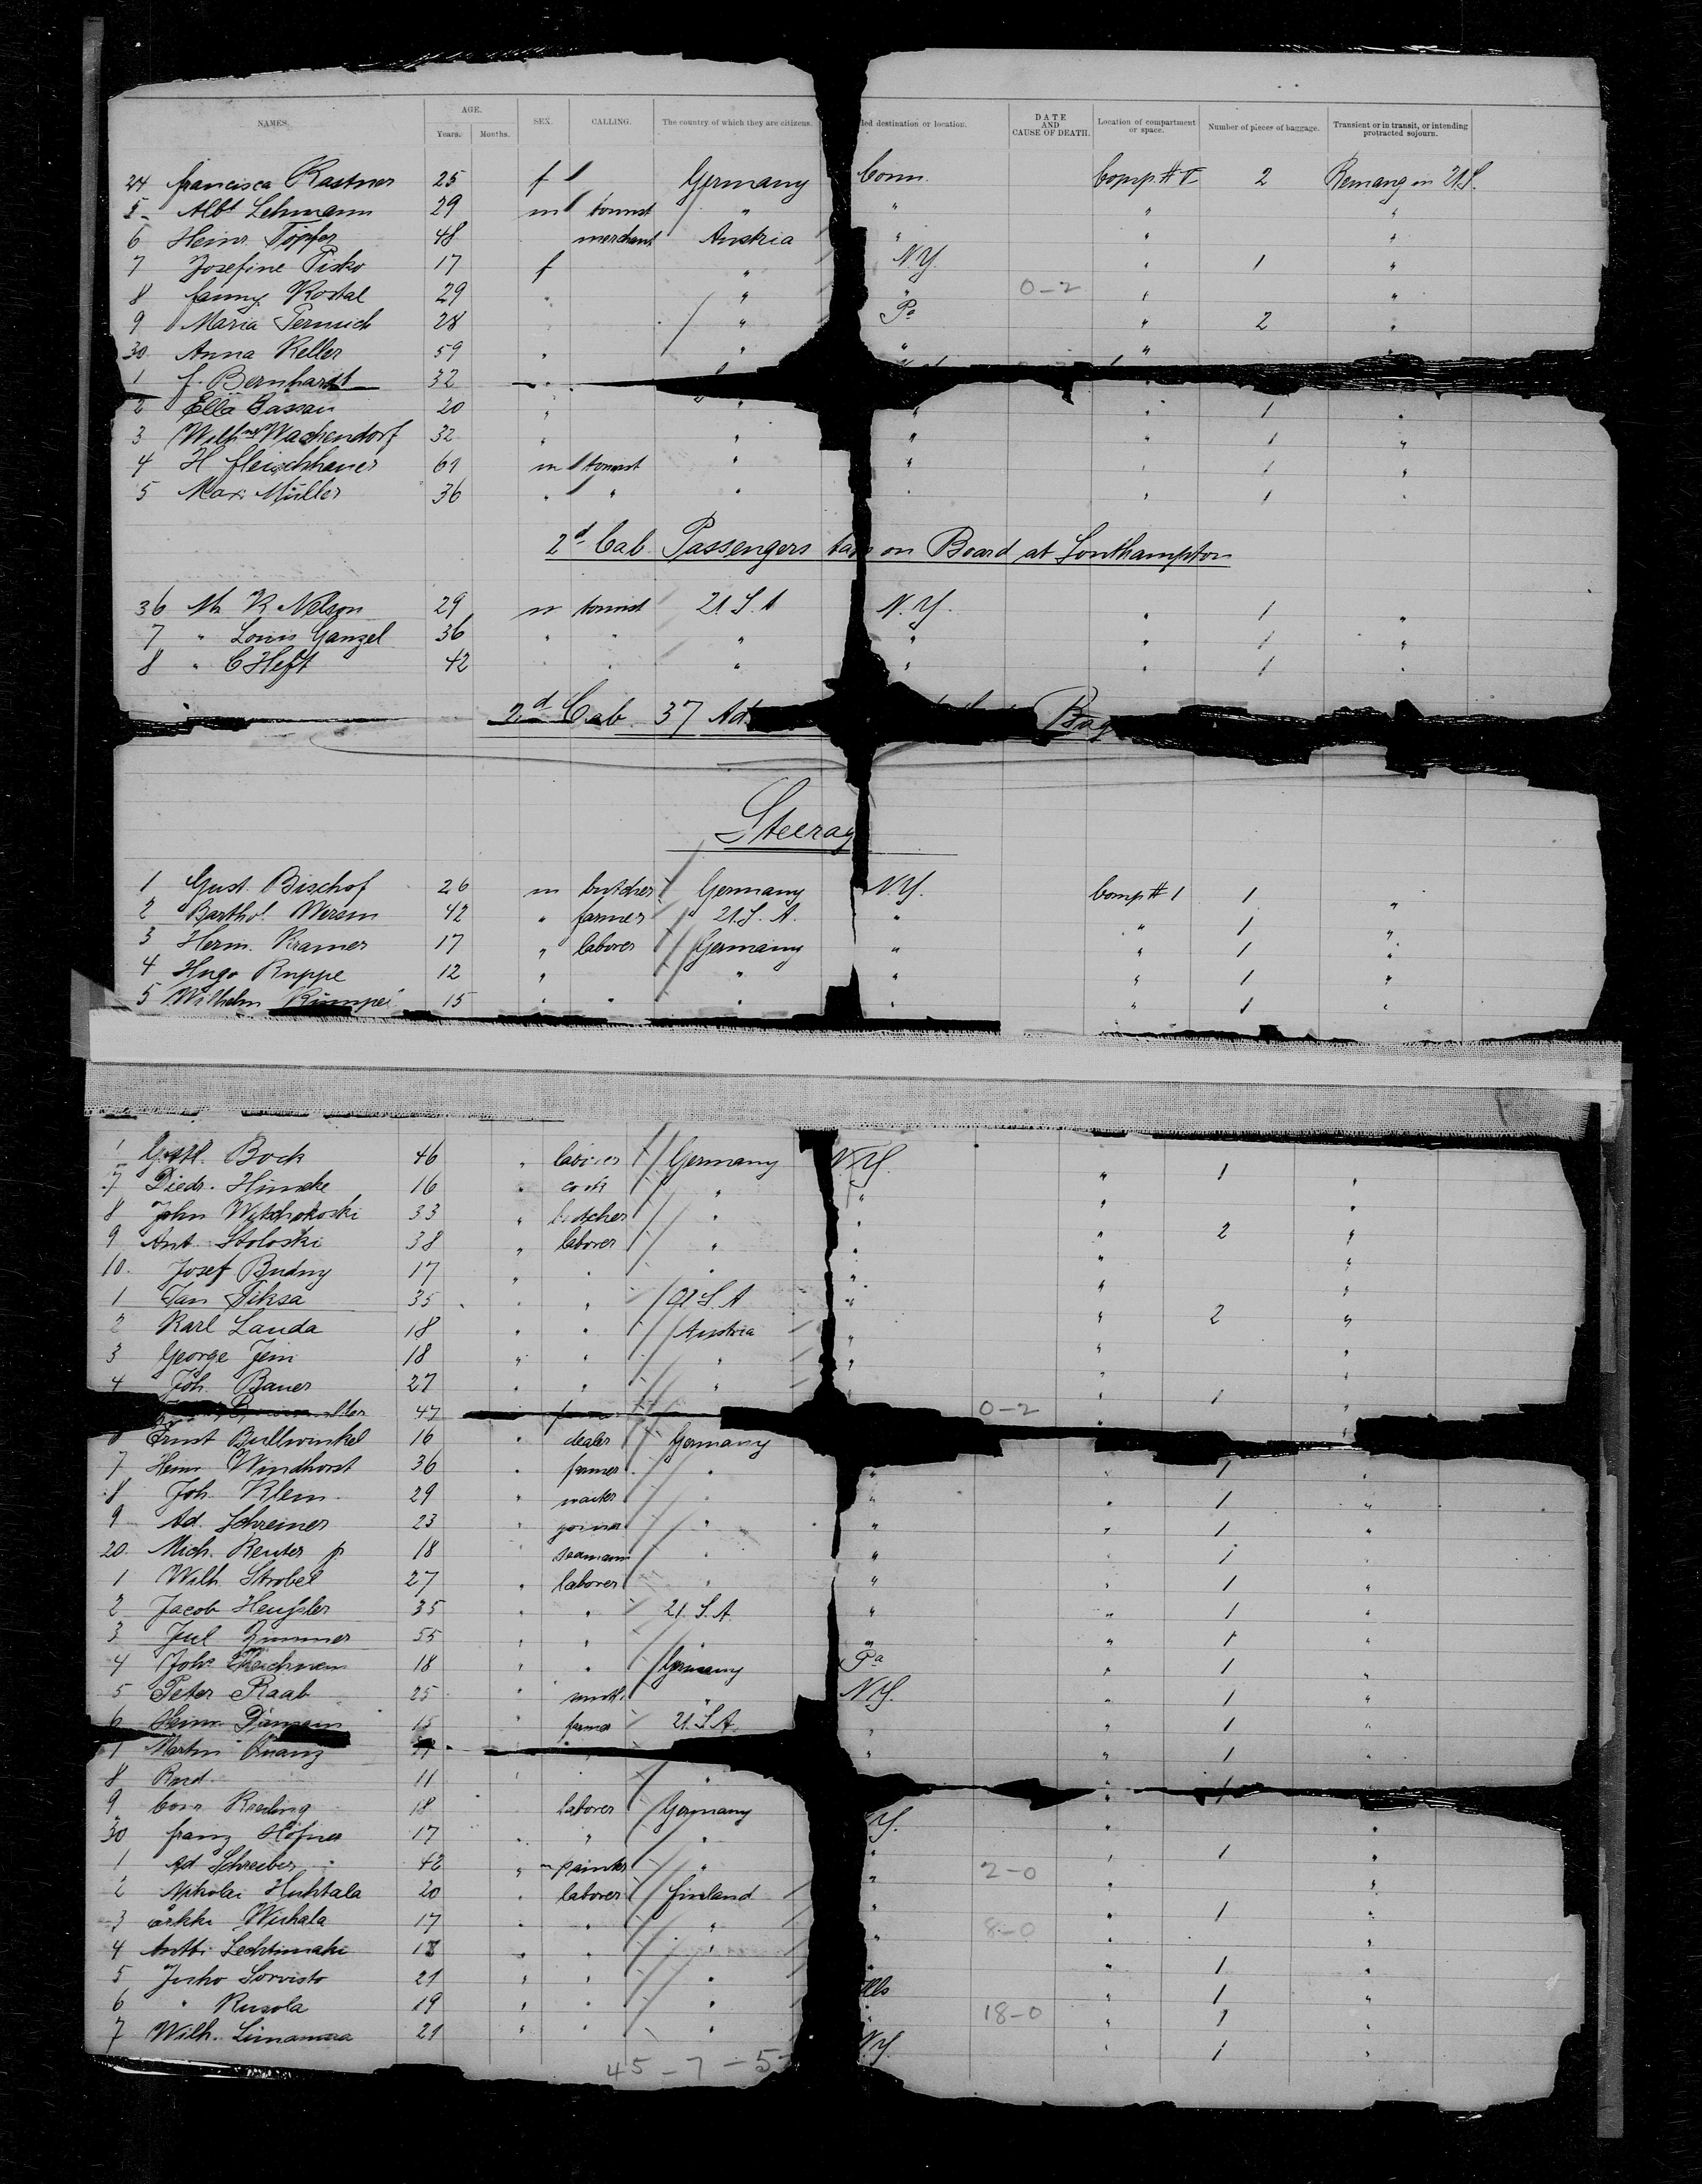 NAMES. AGE. Years. Months. SEX. CALLING. The country of which they are citizens. led destination or location. DATE AND CAUSE OF DEATH. Location of compartment or space. Number of pieces of baggage. Transient or in transit, or intending protracted sojourn.
24 Francisca Kastner 25 f Germany Conn. Comp # V 2 Remang in U.S.
5 Albt Lehmann 29 m tourist " " " "
6 Heinr. Töpfer 48 merchant Austria " " "
7 Josefine Pisko 17 f " N.Y. " 1 "
8 Fanny Kostal 29 " " " 0-2 " "
9 Maria Permich 28 " Pa " 2 "
30 Anna Keller 59 " " " " "
1 f. Bernhardt 32 "
2 Ella Bassan 20 " " " " 1 "
3 Wilhne Wachendorf 32 " " " " 1 "
4 H Fleischhauer 61 m tourist " " " 1 "
5 Max Müller 36 " " " " 1 "
2d Cab Passengers on Board at Southampton
36 Mr K. Nelson 29 m tourist U.S.A N.Y. " 1 "
7 " Louis Ganzel 36 " " " " " 1 "
8 " C Heft 42 " " " " 1 "
2d Cab. 37 Ad. Bag
Steerag
1 Gust. Bischof 26 m butcher Germany N.Y. Comp # 1 1 "
2 Barthol. Wersin 42 " farmer U.S.A. " " 1 "
3 Herm. Kramer 17 " laborer Germany " " 1 "
4 Hugo Ruppe 12 " " " " 1 "
5 Wilhelm Rümpel 15 " " " " " 1 "
Bock 46 " laborer Germany N.Y. " 1 "
7 Diedr. Himcke 16 " cook " " " "
8 John Witschokoski 33 " butcher " " " 2 "
9 Ant. Stoloski 38 " laborer " " " "
10. Josef Budny 17 " " " " " "
1 Jan Piksa 35 " " U.S.A " " 2 "
2 Karl Landa 18 " " Austria " " "
3 George Jeni 18 " " " " " "
4 Joh. Bauer 27 " " " " 1 "
47 0-2
6 Ernst Bullwinkel 16 " dealer Germany
7 Heinr Windhorst 36 " farmer " " " 1 "
8 Joh. Klein 29 " waiter " " " 1 "
9 Ad. Schreiner 23 " joiner " " " 1 "
20. Mich. Reuter jr 18 " seamann " " " 1 "
1 Wilh. Strobel 27 " laborer " " " 1 "
2 Jacob Heussler 35 " " U.S.A " " 1 "
3 Jul Zimmer 55 " " " " " 1 "
4 Johs 18 " " Germany Pa " 1 "
5 Peter Raab 25 " smith " N.Y. " 1 "
6 Heinr. 15 " farmer U.S.A. " " 1 "
7 Martin Quanz " " 1 "
8 Rud. 11 " " 1
9 Conr Kreiling 18 " laborer Germany Y. " "
30 Franz Höfner 17 " " " " " 1 "
1 Ad Schreiber 42 " painter " " 2-0 " "
2 Nikolai Huhtala 20 " laborer Finland " " 1 "
3 Erkki Wiihala 17 " " " " 8-0 " "
4 Antti Lechtimaki 18 " " " " " 1 "
5 Juho Sorvisto 21 " " " Ills " 1 "
6 " Rusola 19 " " " " 18-0 " 1 "
7 Wilh. 21 " " " N.Y. " 1 "
45-7-5